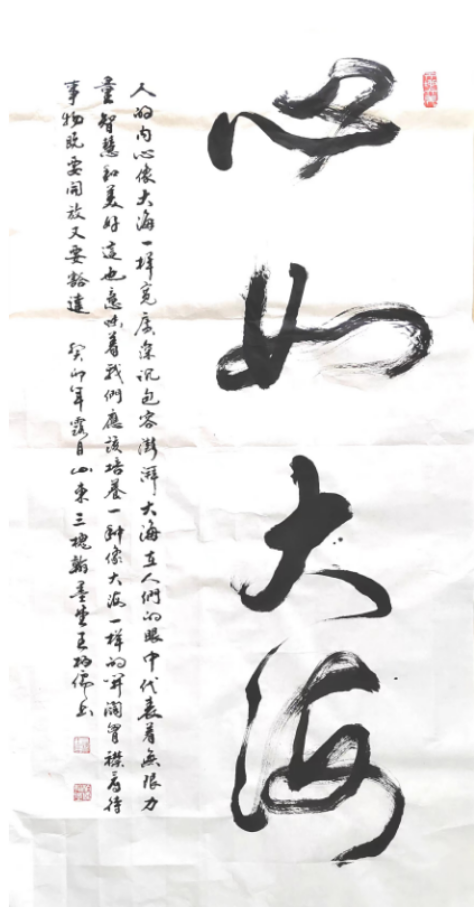 心如大海
人的内心像大海一样宽广深沉包容澎湃大海在人們的眼中代表着無限力
量智慧和美好這也意味着我們應該培養一种像大海一样的开阔胸襟看待
事物既要開放又要豁達 癸卯年露月山東三槐翰墨堂王炳儒书